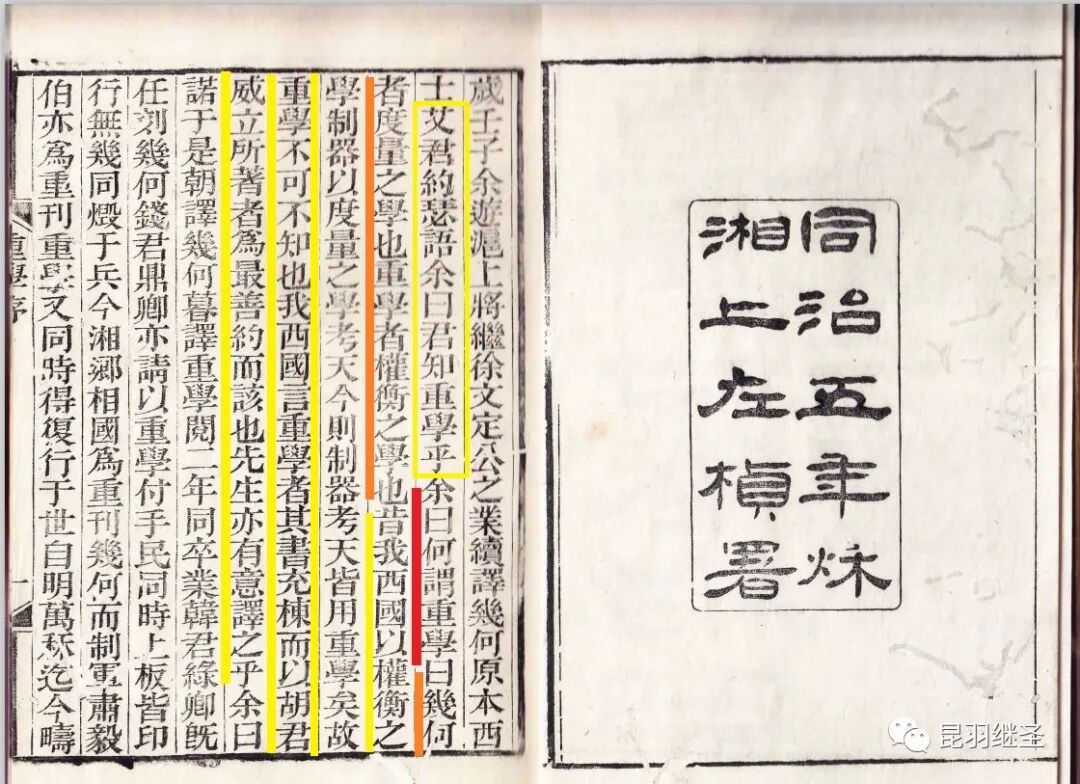 同治五年秌
湘上左楨署
歲壬子余遊滬上將繼徐文定公之業續譯幾何原本西
士艾君約瑟語余曰君知重學乎余曰何謂重學曰幾何
者度量之學也重學者權衡之學也昔我西國以權衡之
學制器以度量之學考天今則制器考天皆用重學矣故
重學不可不知也我西國言重學者其書充棟而以胡君
威立所著者爲最善約而該也先生亦有意譯之乎余曰
諾于是朝譯幾何暮譯重學閱二年同卒業韓君綠卿旣
任刻幾何錢君鼎卿亦請以重學付手民同時上板皆印
行無幾同燬于兵今湘鄉相國爲重刊幾何而制軍肅毅
伯亦爲重刊重學又同時得復行于世自明萬秝迄今疇
重學序
一
昆羽继圣